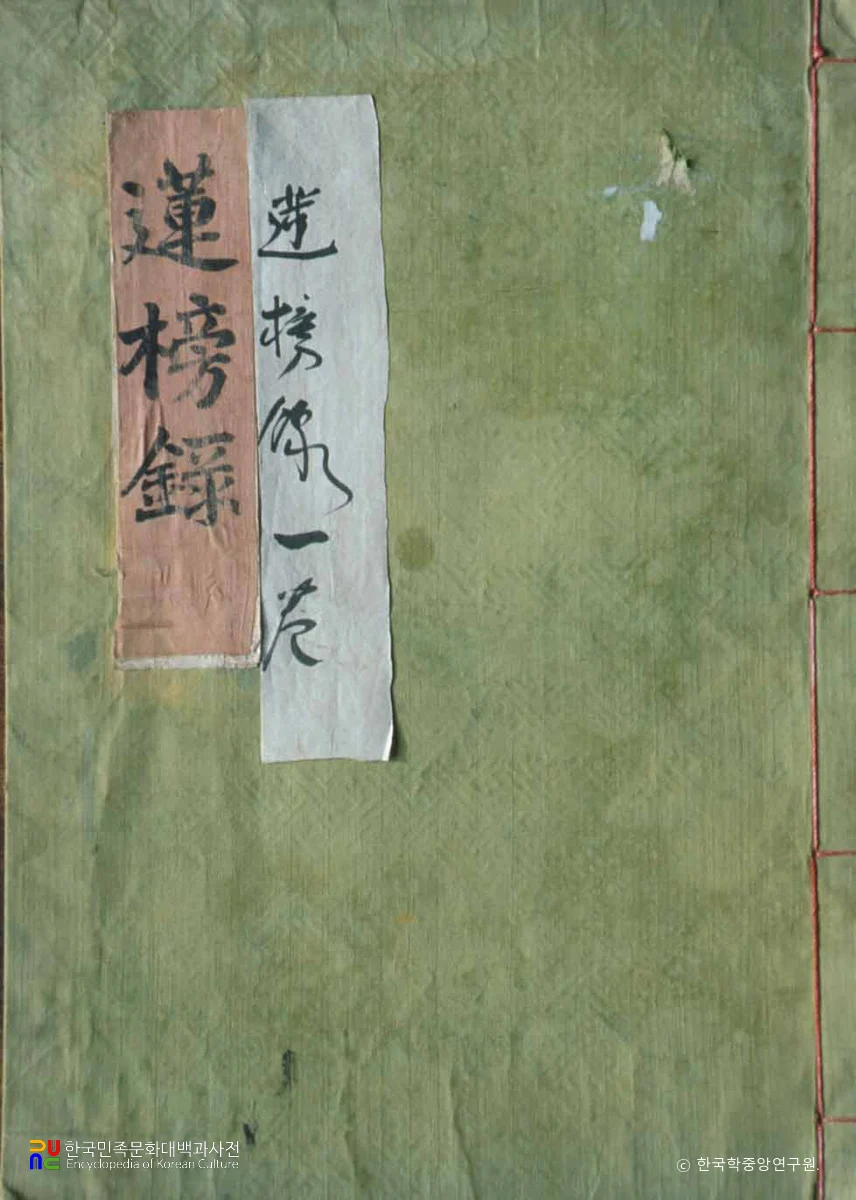 蓮榜錄
蓮榜錄一卷
한국민족문화대백과사전
Encyclopedia of Korean Culture
© 한국학중앙연구원.